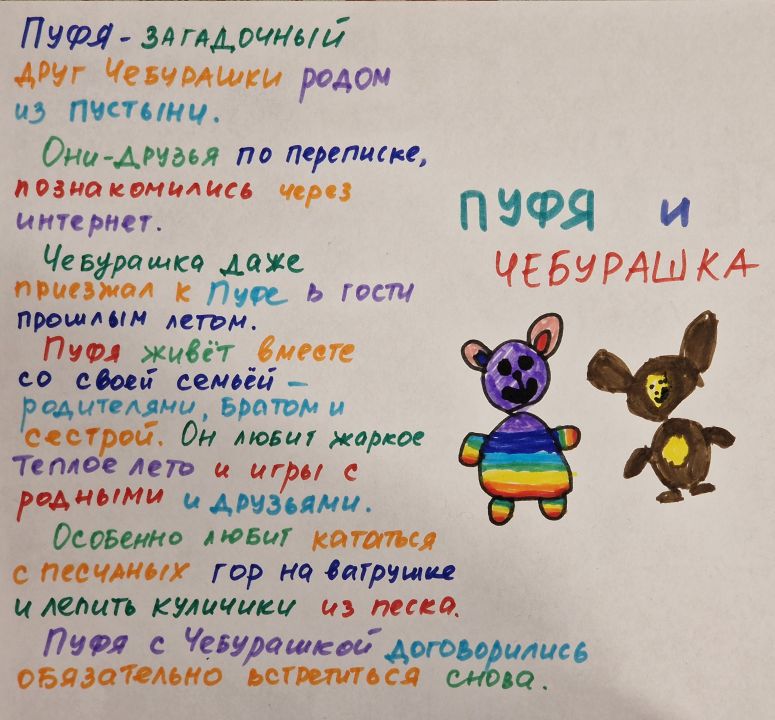 Пуфя - загадочный
друг Чебурашки родом
из пустыни.
Они - друзья по переписке,
познакомились через
интернет.
Чебурашка даже
приезжал к Пуфе в гости
прошлым летом.
Пуфя живёт вместе
со своей семьёй –
родителями, братом и
сестрой. Он любит жаркое
теплое лето и игры с
родными и друзьями.
Особенно любит кататься
с песчаных гор на ватрушке
и лепить куличики из песка.
Пуфя с Чебурашкой договорились
обязательно встретиться снова.
ПУФЯ И
ЧЕБУРАШКА